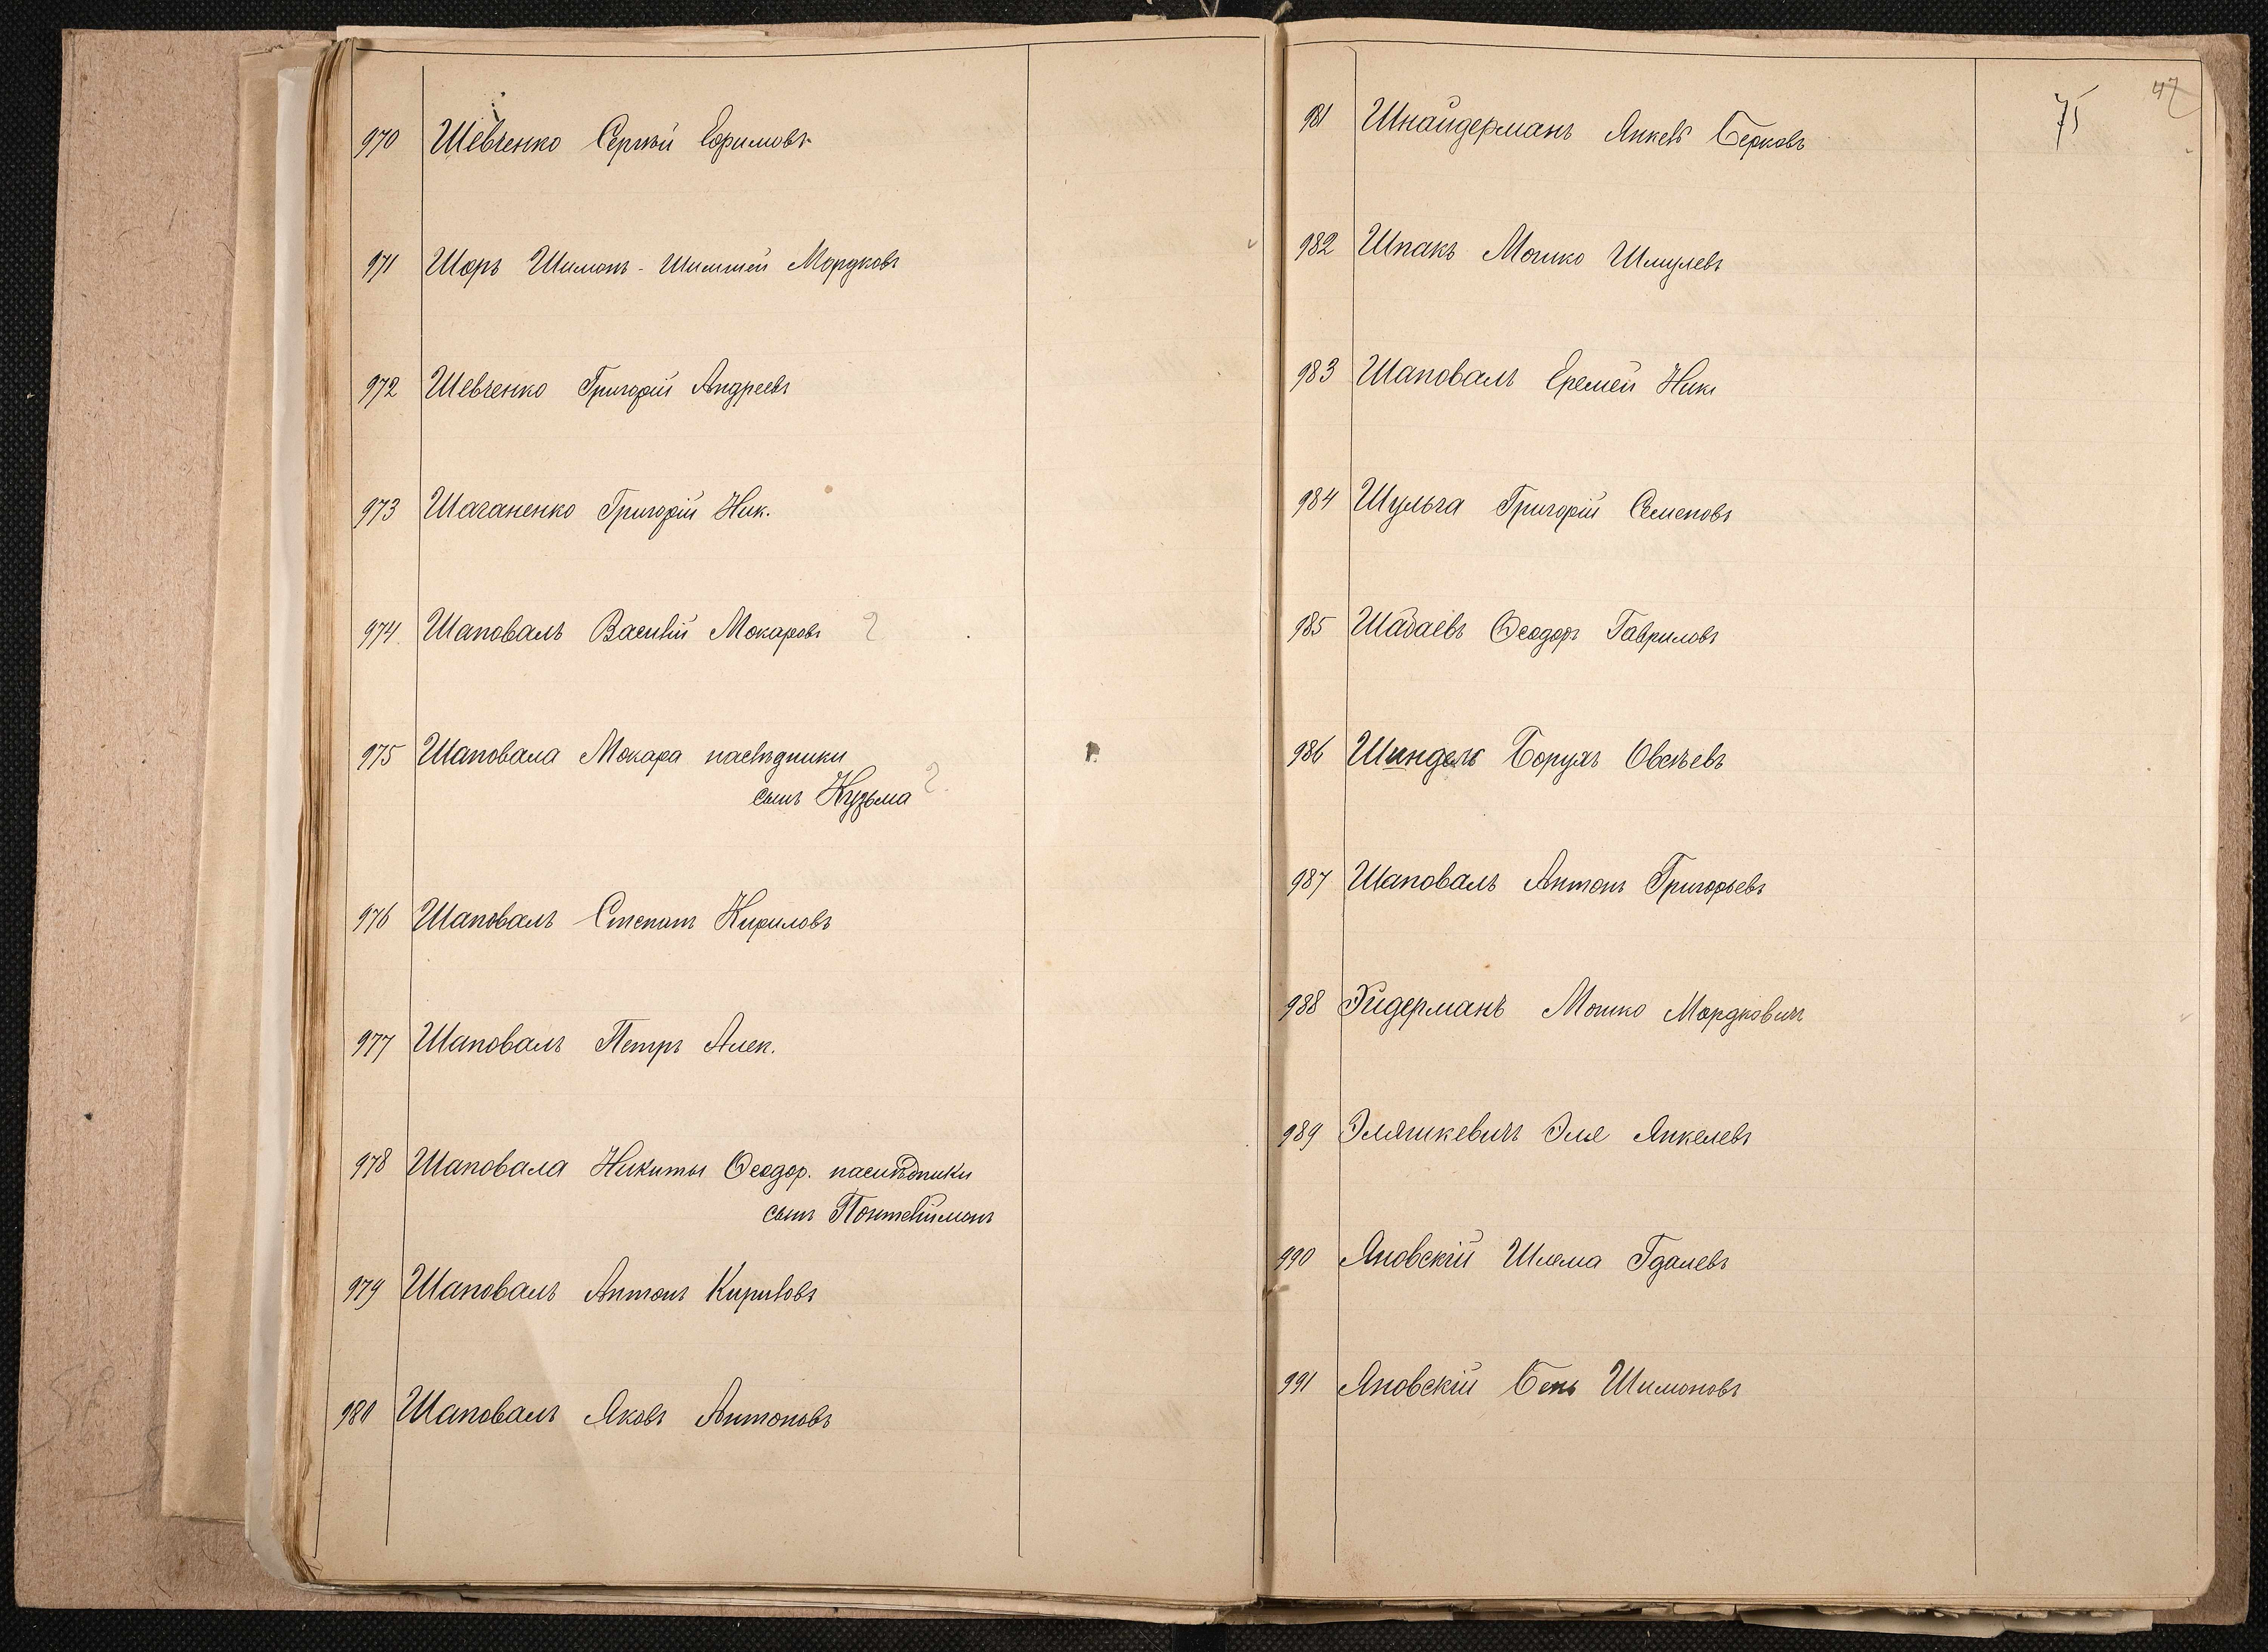 970 Шевченко Сергѣй Ефимовъ
971 Шоръ Шимонъ - Шимшей Мордковъ
972 Шевченко Григорій Андреевъ
973 Шаганенко Григорій Ник.
974 Шаповалъ Василій Мокаровъ 2
975 Шаповала Мокара наслѣдники
сынъ Кузьма 2
976 Шаповалъ Степанъ Кириловъ
977 Шаповалъ Петръ Алек.
978 Шаповала Никиты Ѳеодор. наслѣдники
сынъ Понтелимонъ
979 Шаповалъ Антонъ Кириловъ
980 Шаповалъ Яковъ Антоновъ
75
47
981 Шнайдерманъ Янкель Берковъ
982 Шпакъ Мошко Шмулевъ
983 Шаповалъ Еремей Ник
984 Шульга Григорій Семеновъ
985 Шабаевъ Ѳеодоръ Гавриловъ
986 Шиндель Борухъ Овсѣевъ
987 Шаповалъ Антонъ Григорьевъ
988 Эйдерманъ Мошко Мордковичъ
989 Эляшкевичъ Эля Янкелевъ
990 Яновскій Шлема Гдалевъ
991 Яновскій Бень Шимоновъ